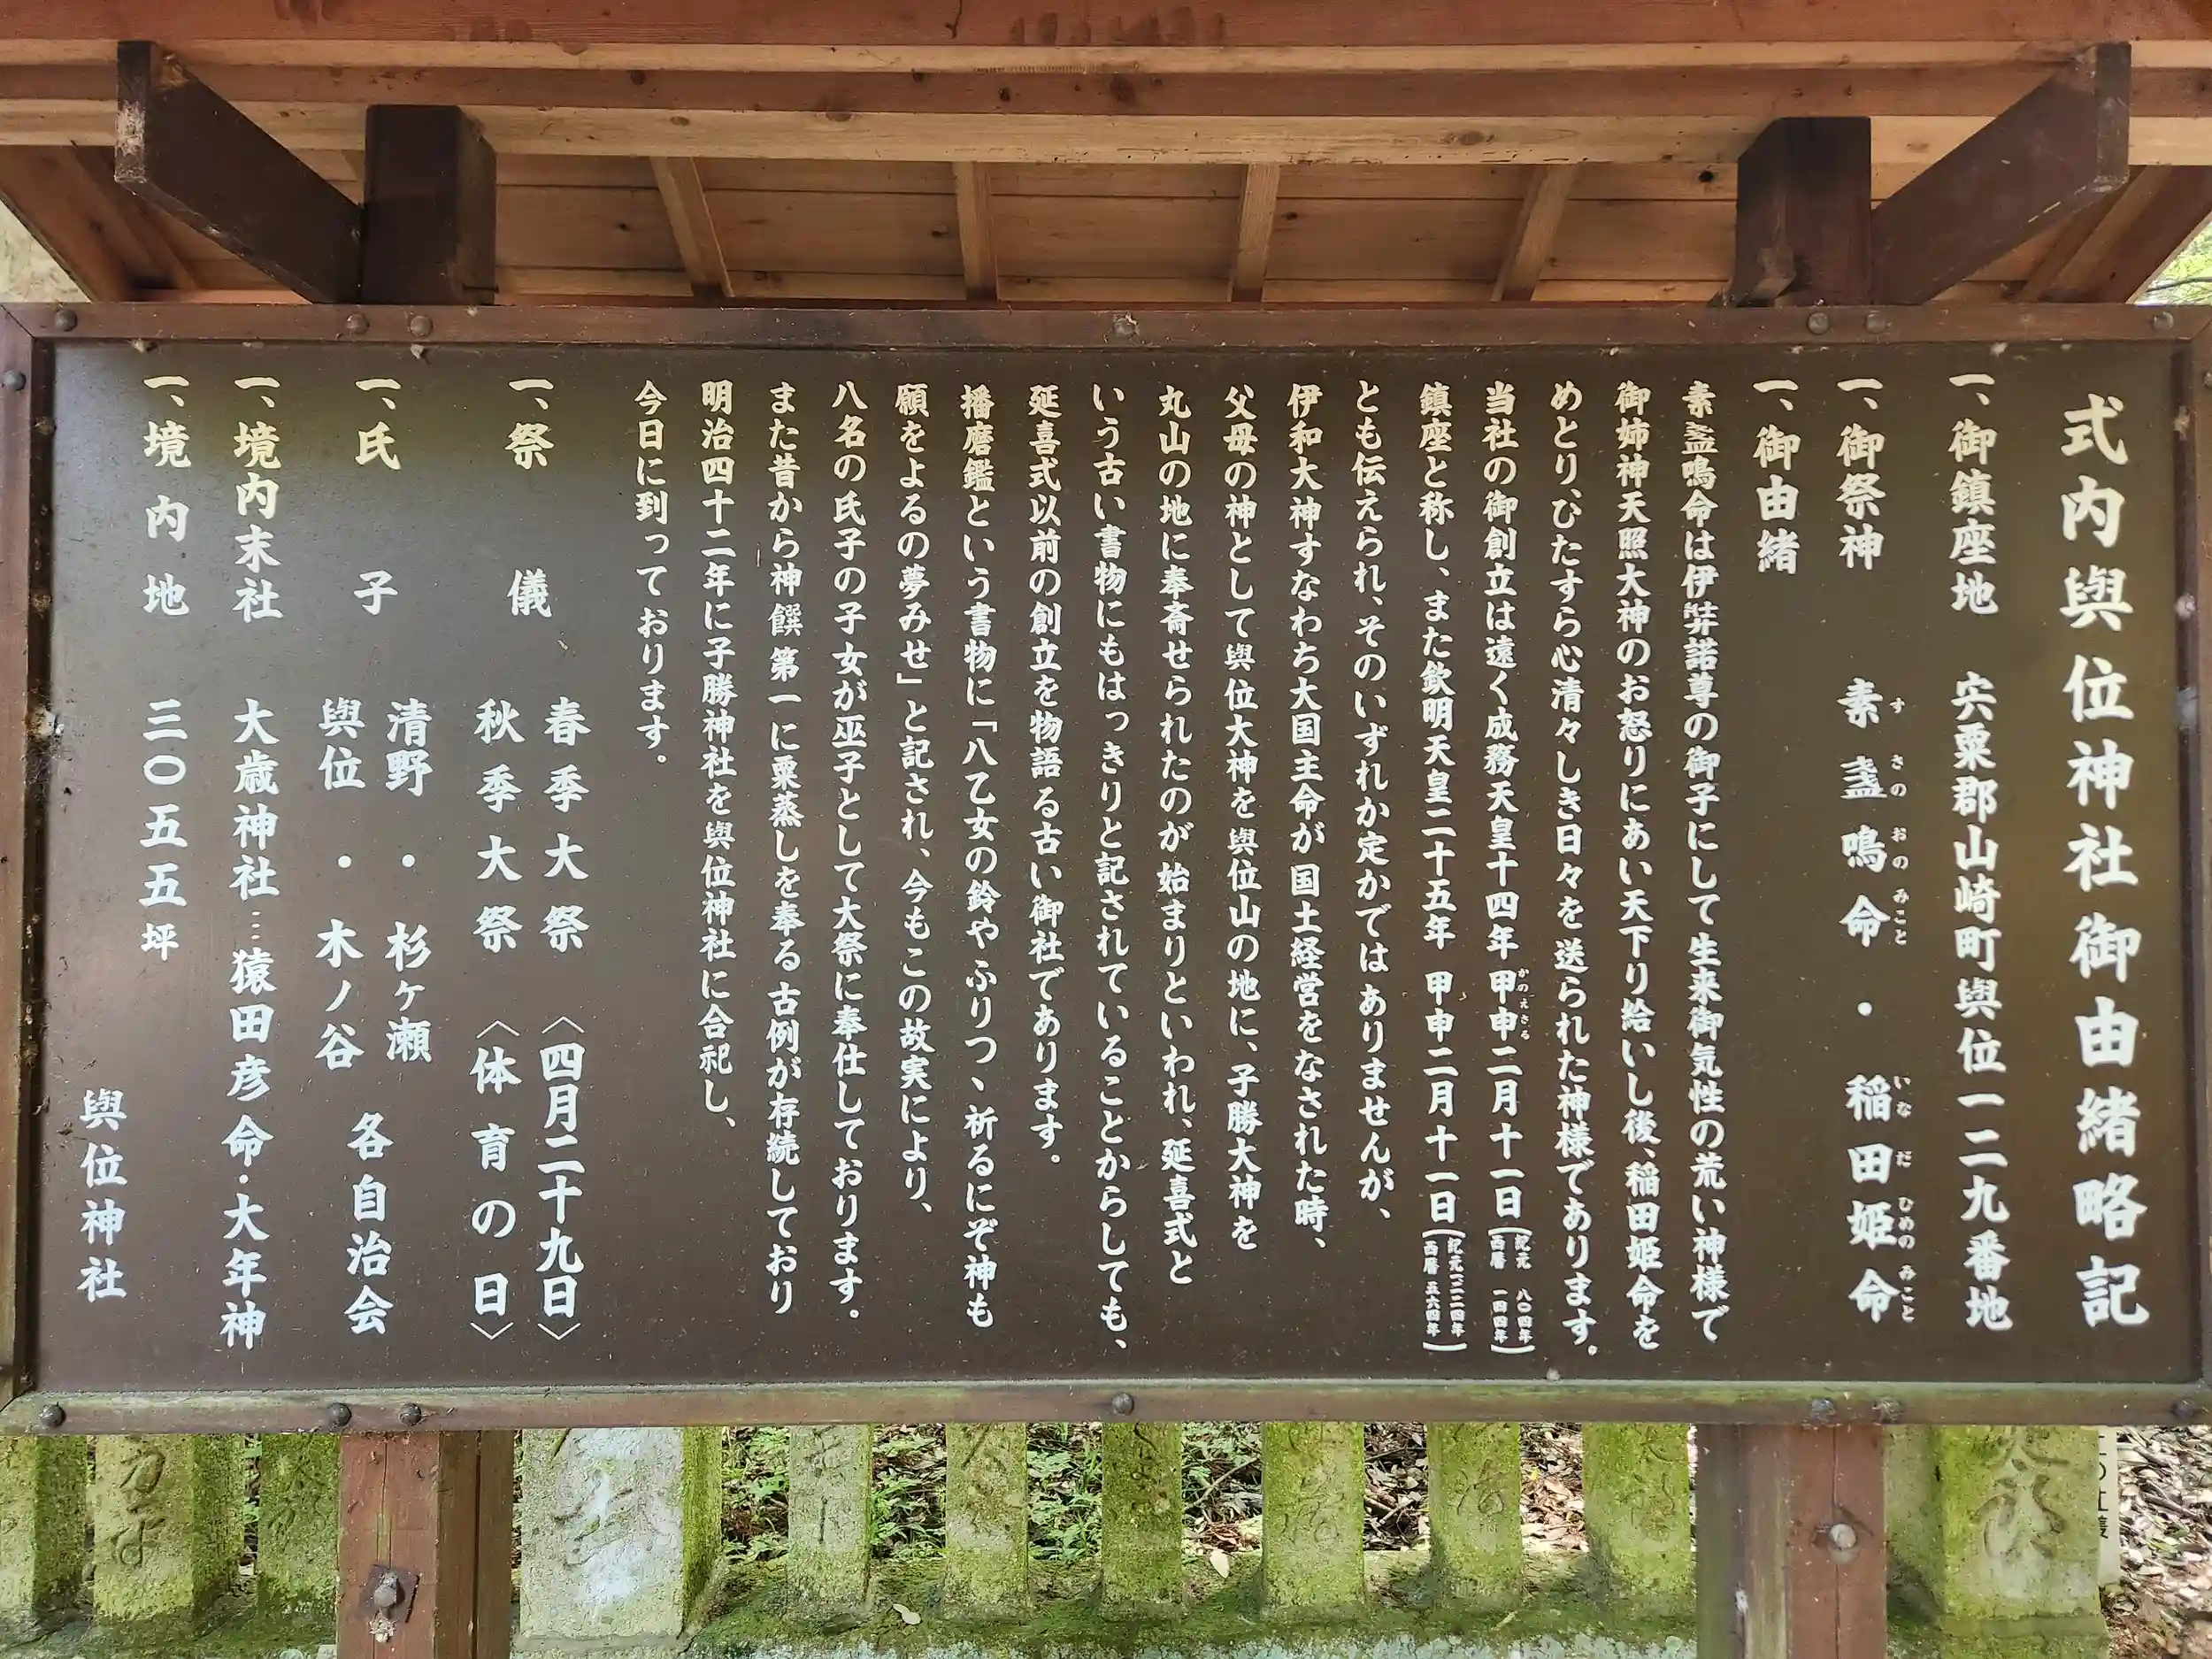 式内與位神社御由緒略記
一、御鎮座地 宍粟郡山崎町與位一二九番地
一、御祭神 素盞鳴命・稲田姫命
すさのおのみこと いなだひめのみこと
一、御由緒
素盞鳴命は伊弉諾尊の御子にして生来御気性の荒い神様で
御姉神天照大神のお怒りにあい天下り給いし後、稲田姫命を
めとり、ひたすら心清々しき日々を送られた神様であります。
当社の御創立は遠く成務天皇十四年甲申二月十一日(紀元 八〇四年 西暦 一四四年)
かのえさる
鎮座と称し、また欽明天皇二十五年 甲申二月十一日(紀元一二二四年 西暦 五六四年)
とも伝えられ、そのいずれか定かではありませんが、
伊和大神すなわち大国主命が国土経営をなされた時、
父母の神として與位大神を與位山の地に、子勝大神を
丸山の地に奉斎せられたのが始まりといわれ、延喜式と
いう古い書物にもはっきりと記されていることからしても、
延喜式以前の創立を物語る古い御社であります。
播磨鑑という書物に「八乙女の鈴やふりつゝ祈るにぞ神も
願をよるの夢みせ」と記され、今もこの故実により、
八名の氏子の子女が巫子として大祭に奉仕しております。
また昔から神饌第一に粟蒸しを奉る古例が存続しており
明治四十二年に子勝神社を與位神社に合祀し、
今日に到っております。
一、祭儀 春季大祭 〈四月二十九日〉
秋季大祭 〈体育の日〉
一、氏子 清野・杉ヶ瀬
與位・木ノ谷 各自治会
一、境内末社 大歳神社…猿田彦命・大年神
一、境内地 三〇五五坪
與位神社